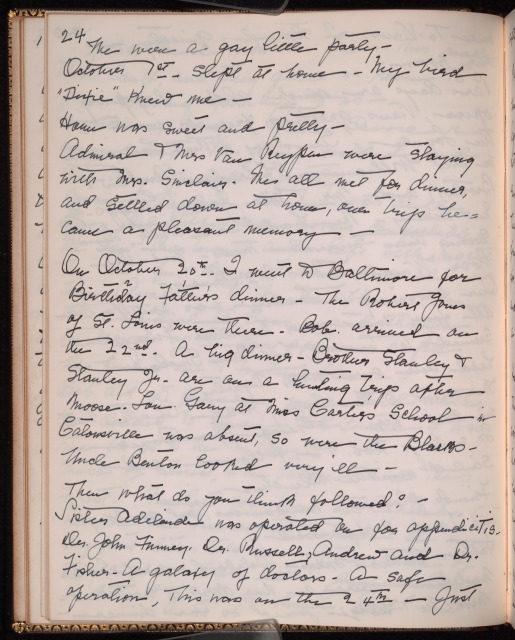 24
We were a gay little party -
October 1st. Slept at home - My bird
"Dixie" knew me -
Home was sweet and pretty -
Admiral & Mrs Van Reypen were staying
with Mrs. Sinclair. We all met for dinner,
and settled down at home, our trip be=
came a pleasant memory -
On October 20th. I went to Baltimore for
Birthday Father's dinner - The Robert Jones
of St. Louis were there. Bob. arrived on
the 22nd. A big dinner - Brother Stanley &
Stanley Jr. are on a hunting trip after
Moose. Lou Gary at Miss Carter's School in
Catonsville was absent, so were the Blacks -
Uncle Benton looked very ill -
Then what do you think followed? -
Sister Adelaide was operated on for appendicitis.
Drs. John Finney, Dr. Russell, Andrew and Dr.
Fisher - A galaxy of doctors - A safe
operation, This was on the 24th - Just